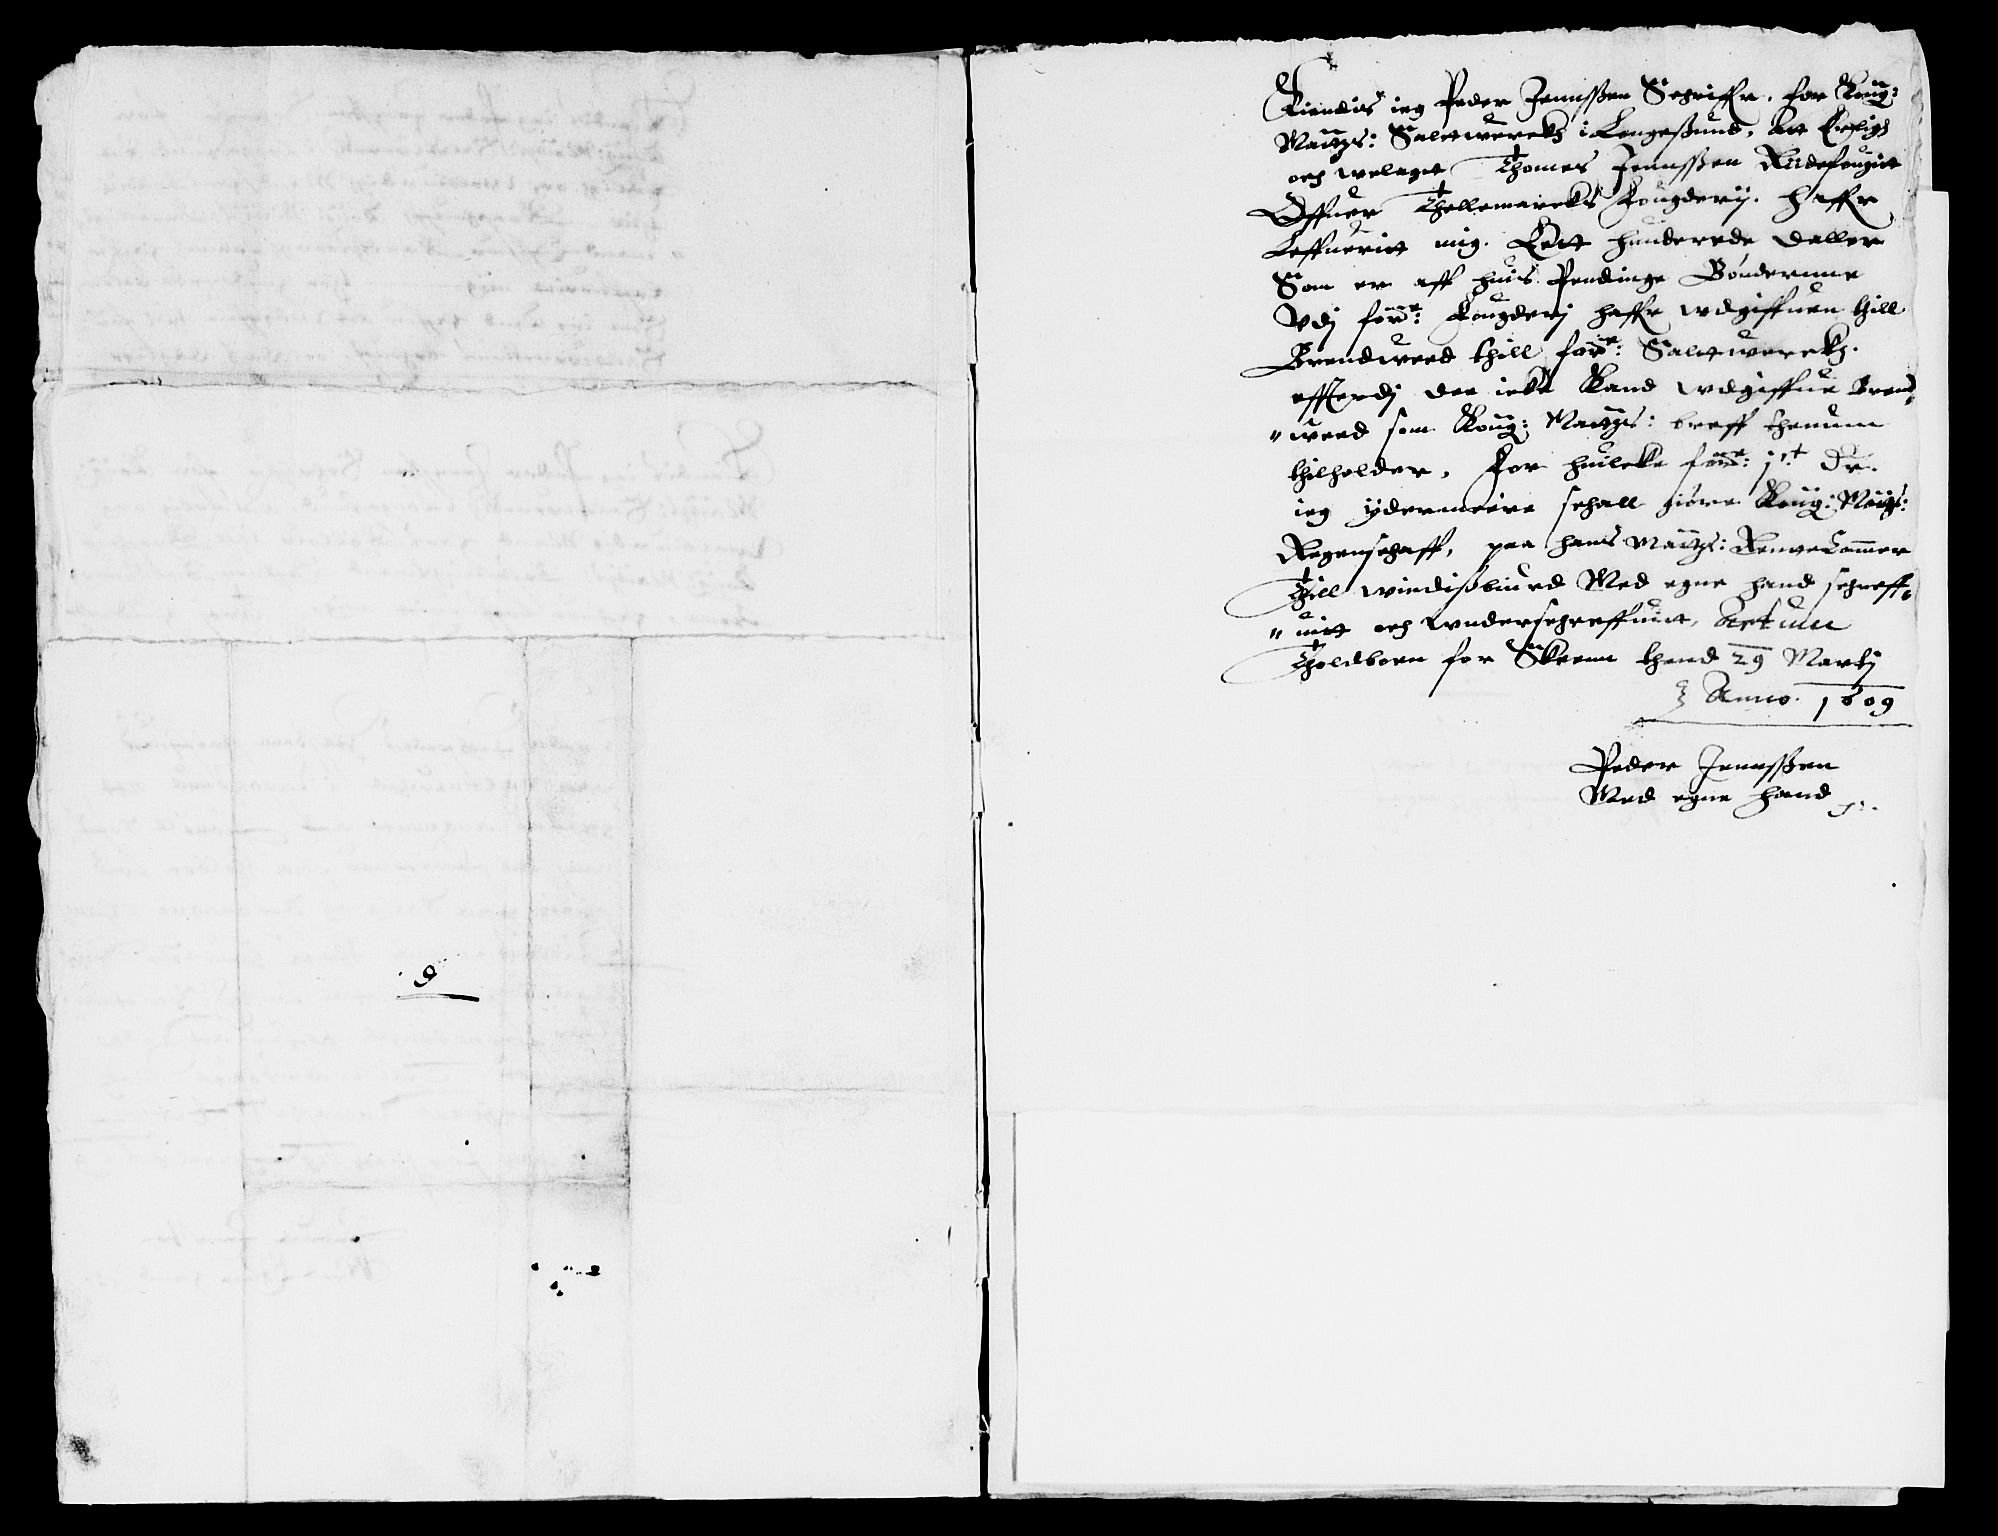 Kiendis ieg Peder Jennssen Schriffr. for Kong:
Maÿtz: Saltwerckh i Langesund, Att Erligh
och welagt Thomes Jennssen Ridefougit
Offuer Thellemarcks Fougderij. Haffr
Leffuerit mig. Eett hunderede Daller
Som er aff huis Pendinge Bønderne
Vdj forne: Fougderij haffr wdgiffuen thill
Brendweed thill forne: Saltwerckh.
effterdj dee icke Kand wdgiffue Brend
" weed som Kong: Maÿtz: breff thennum
thilholder, For huilcke forne: jct Dr.
ieg ÿdermeire schall giøre Kong: Maÿtz:
Regenschaff, paa hans Maÿtz: Rennte Cammer
Thill windissbiurd Med egne hand schreff,
" uit och wnderschreffuit, Actum
Tholdboen for Skeenn thend 29 Martij
Anno. 1609
Peder Jennssen
Med egne hand
9